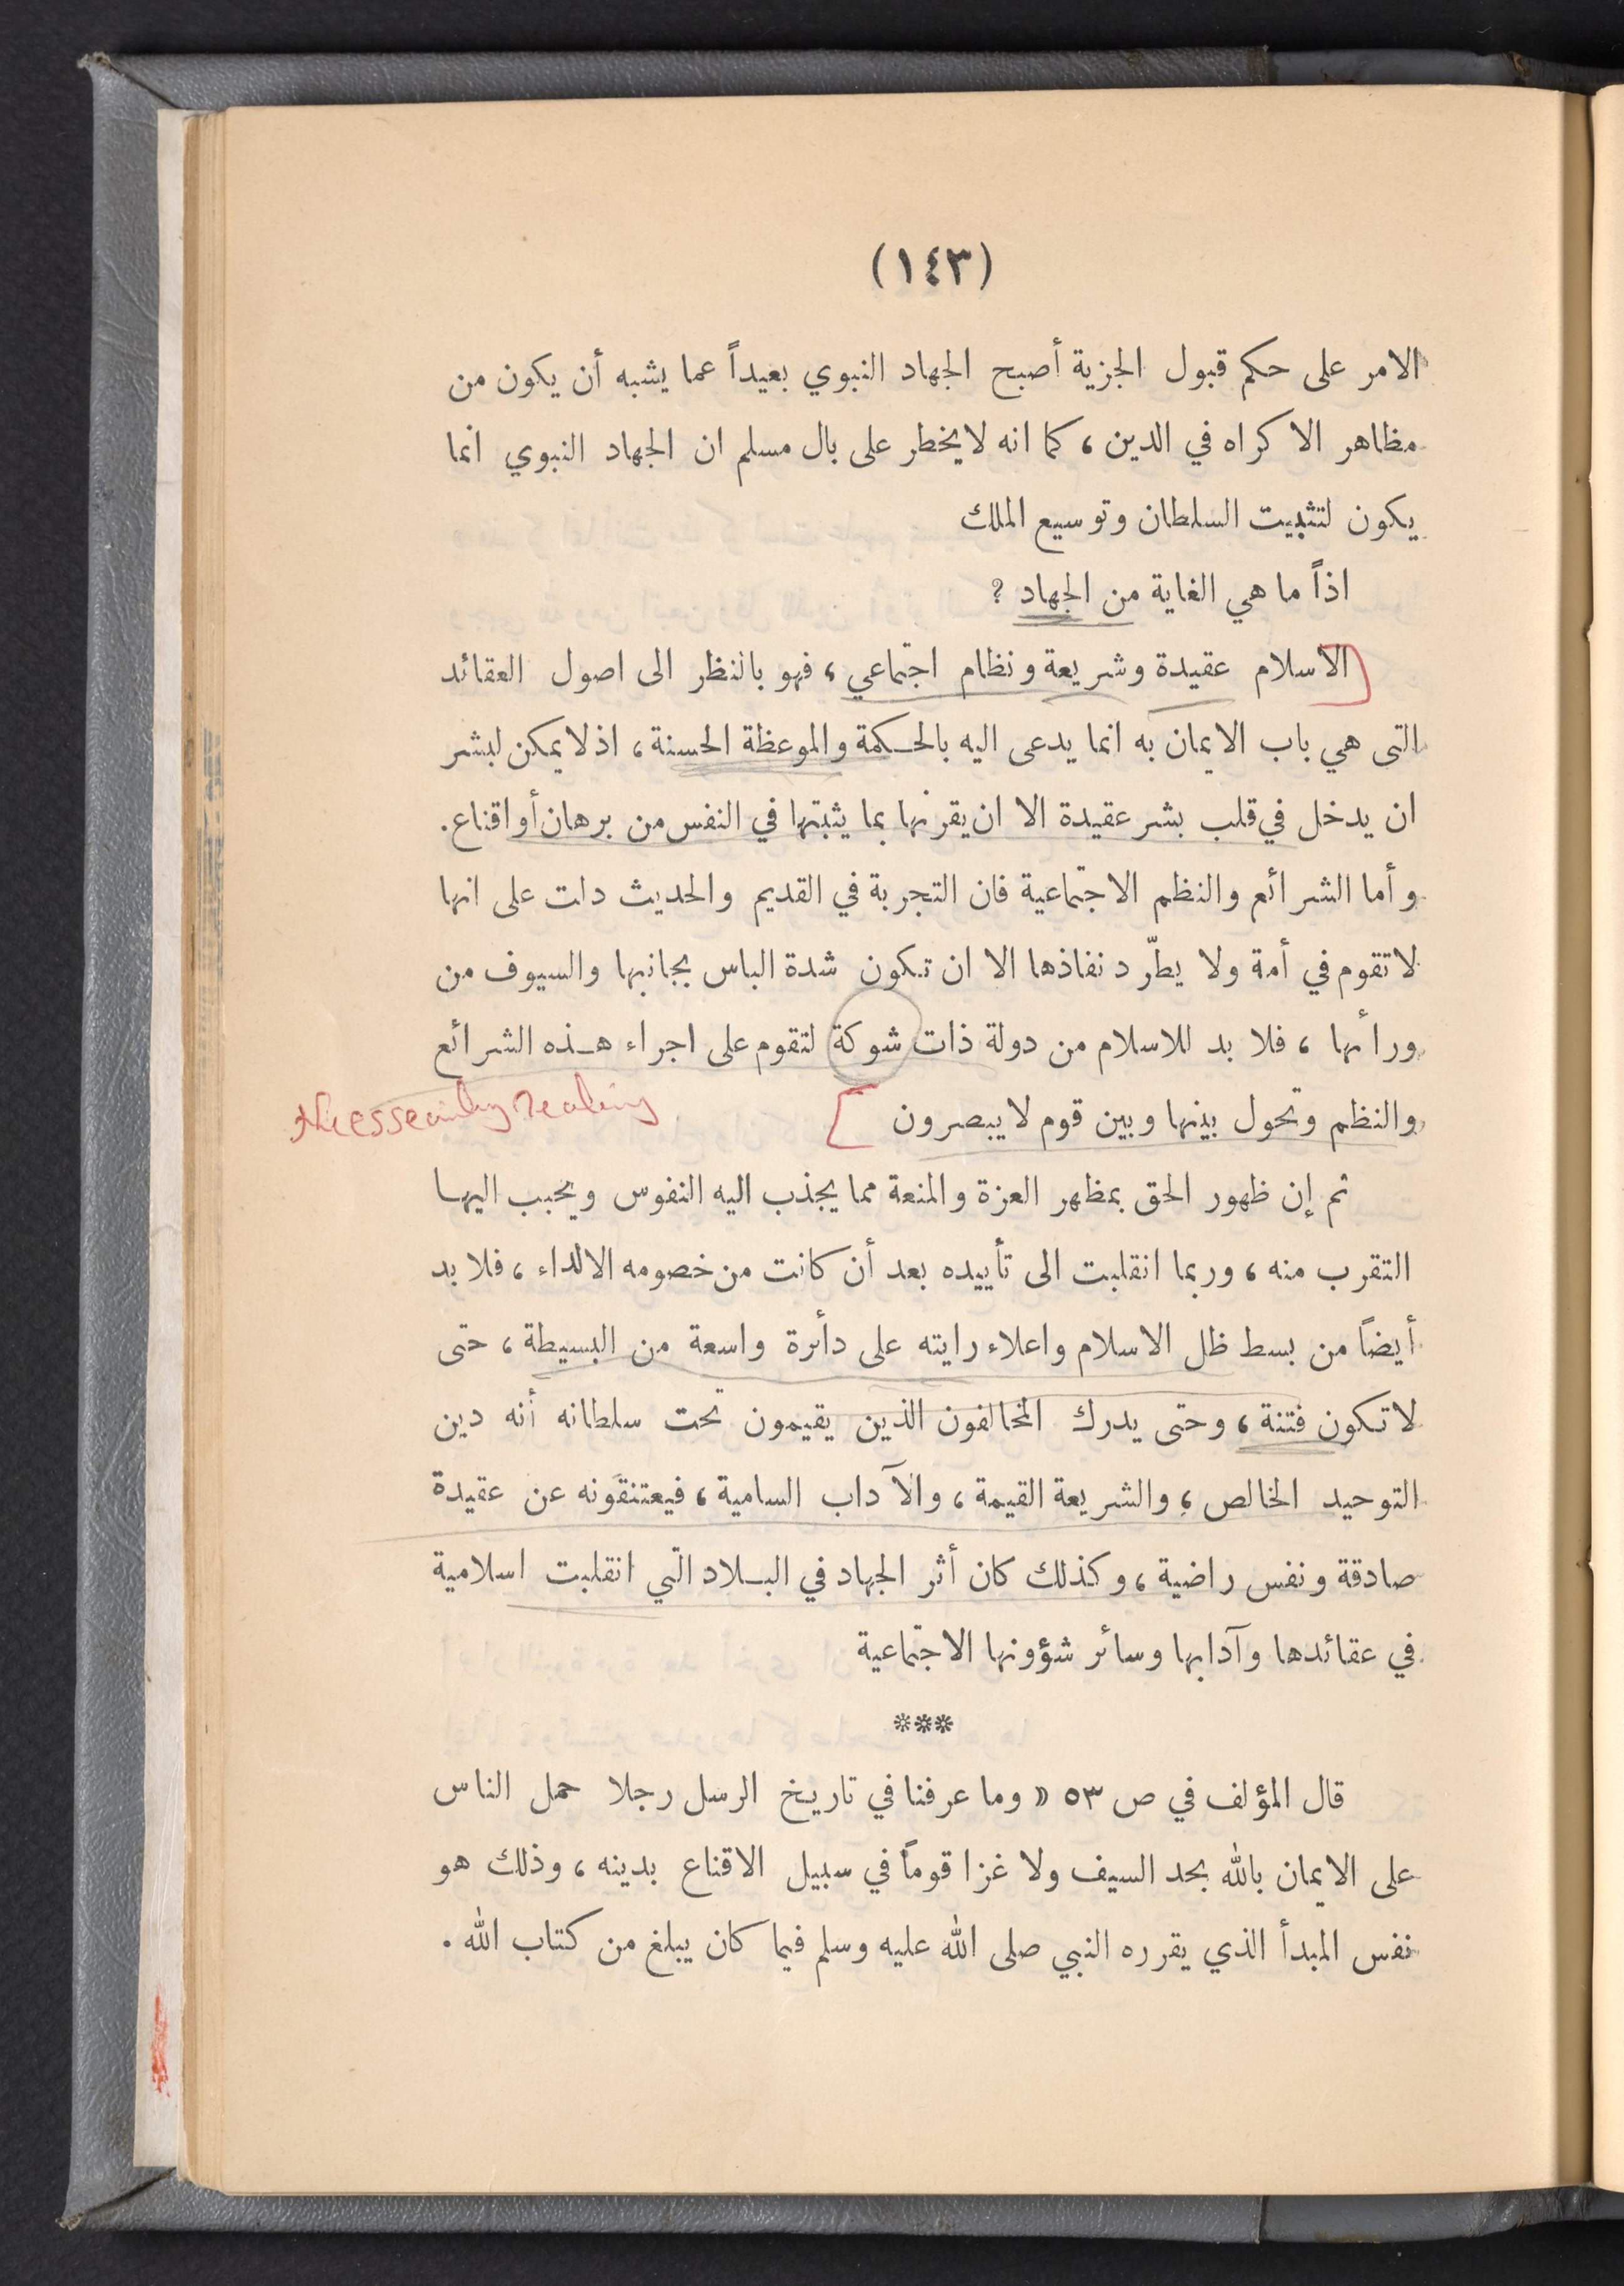 (١٤٣)
الامر على حكم قبول الجزية أصبح الجهاد النبوي بعيداً عما يشبه أن يكون من
مظاهر الاكراه في الدين، كما انه لا يخطر على بال مسلم ان الجهاد النبوي انما
يكون لتثبيت السلطان وتوسيع الملك
اذاً ما هي الغاية من الجهاد ؟
الاسلام عقيدة وشريعة ونظام اجتماعي، فهو بالنظر الى اصول العقائد
التى هي باب الايمان به انما يدعى اليه بالحكمة والموعظة الحسنة، اذ لا يمكن لبشر
ان يدخل في قلب بشر عقيدة الا ان يقرنها بما يثبتها في النفس من برهان أو اقناع.
وأما الشرائع والنظم الاجتماعية فان التجربة في القديم والحديث دلت على انها
لا تقوم في أمة ولا يطّرد نفاذها الا ان تكون شدة الباس بجانبها والسيوف من
ورائها، فلا بد للاسلام من دولة ذات شوكة لتقوم على اجراء هذه الشرائع
والنظم وتحول بينها وبين قوم لا يبصرون
ثم إن ظهور الحق بمظهر العزة والمنعة مما يجذب اليه النفوس ويحبب اليها
التقرب منه، وربما انقلبت الى تأييده بعد أن كانت من خصومه الالداء، فلا بد
أيضاً من بسط ظل الاسلام واعلاء رايته على دائرة واسعة من البسيطة، حتى
لا تكون فتنة، وحتى يدرك المخالفون الذين يقيمون تحت سلطانه أنه دين
التوحيد الخالص، والشريعة القيمة، والآداب السامية، فيعتنقونه عن عقيدة
صادقة ونفس راضية، وكذلك كان أثر الجهاد في البلاد التي انقلبت اسلامية
في عقائدها وآدابها وسائر شؤونها الاجتماعية
***
قال المؤلف في ص ٥٣ « وما عرفنا في تاريخ الرسل رجلا حمل الناس
على الايمان بالله بحد السيف ولا غزا قوماً في سبيل الاقناع بدينه، وذلك هو
نفس المبدأ الذي يقرره النبي صلى الله عليه وسلم فيما كان يبلغ من كتاب الله.